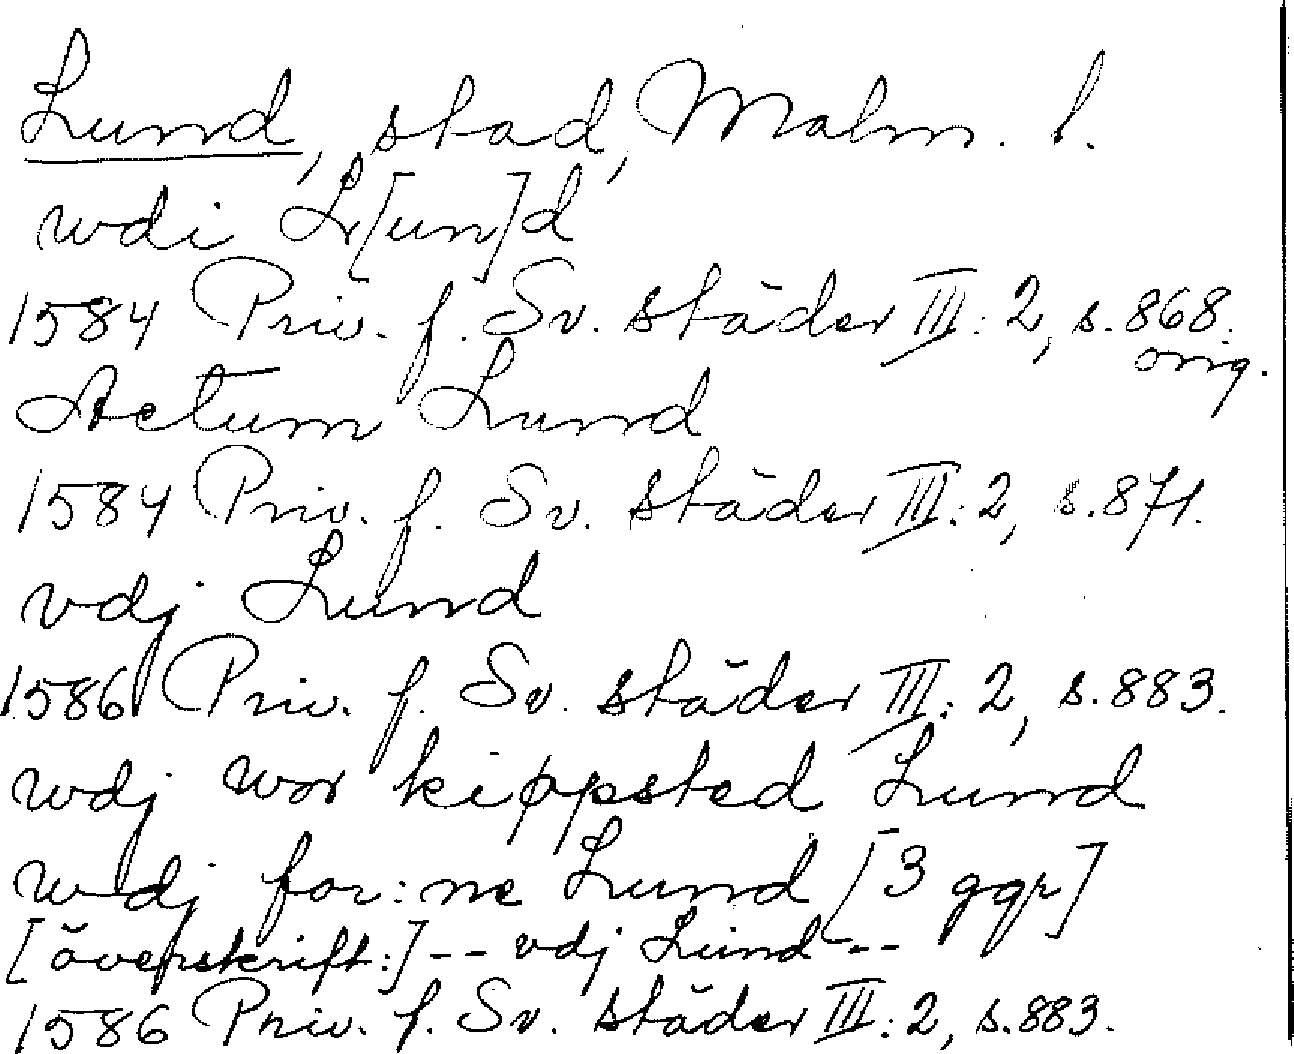 Lund, stad, Malm. l.
wdi L[un]d
1584 Priv. f. Sv. städer III: 2, s. 868.
orig.
Actum Lund
1584 Priv. f. Sv. städer III: 2, s. 871.
vdj Lund
1586 Priv. f. Sv. städer III: 2, s. 883.
wdj wor kippsted Lund
wdj for:ne Lund [3 ggr]
[överskrift:] -- vdj Lund --
1586 Priv. f. Sv. städer III: 2, s. 883.